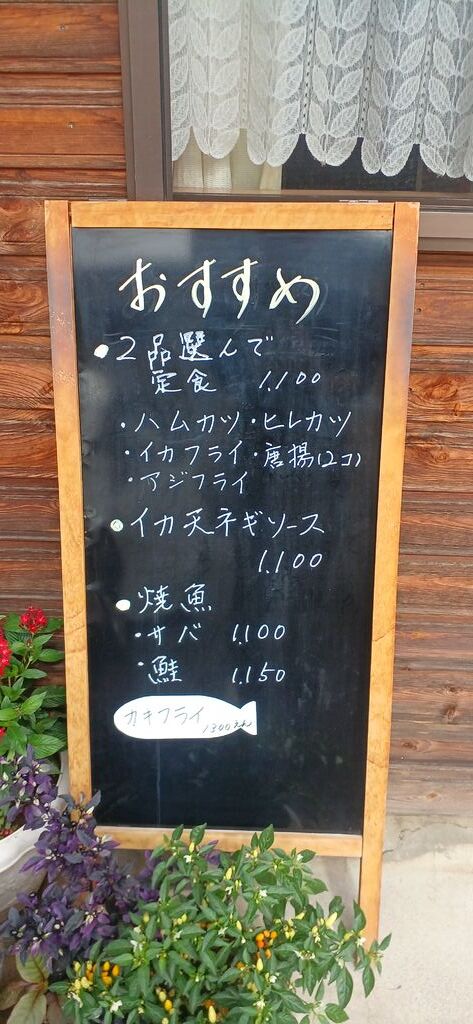 おすすめ
●2品選んで
定食 1,100
・ハムカツ・ヒレカツ
・イカフライ・唐揚(2コ)
・アジフライ
●イカ天ネギソース
1,100
●焼魚
・サバ 1,100
・鮭 1,150
カキフライ
1300えん